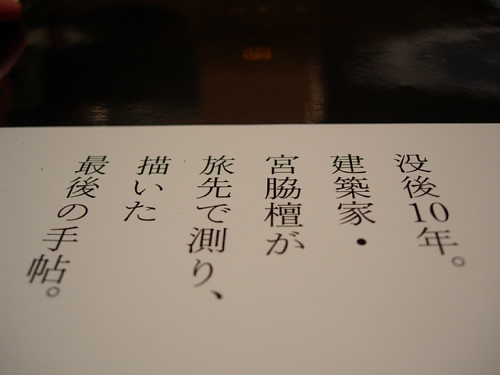 没後10年。
建築家・
宮脇檀が
旅先で測り、
描いた
最後の手帖。